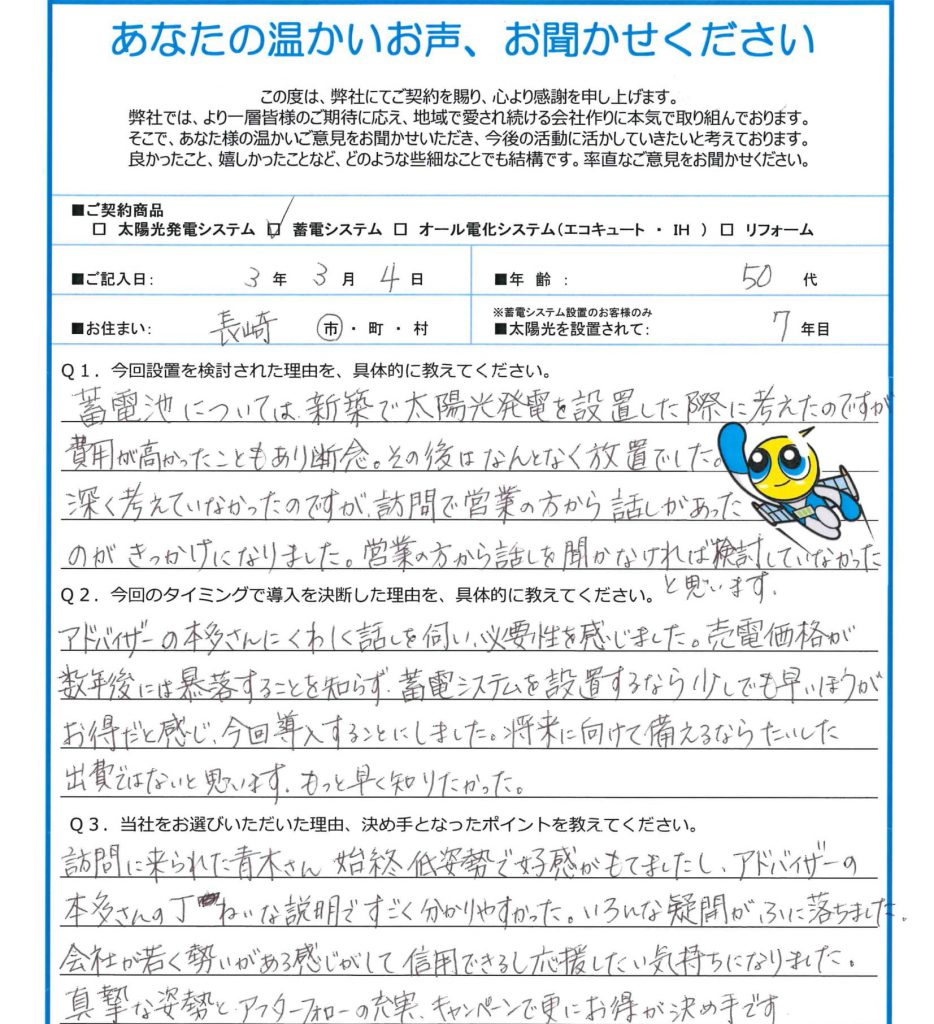 あなたの温かいお声、お聞かせください
この度は、弊社にてご契約を賜り、心より感謝を申し上げます。
弊社では、より一層皆様のご期待に応え、地域で愛され続ける会社作りに本気で取り組んでおります。
そこで、あなた様の温かいご意見をお聞かせいただき、今後の活動に活かしていきたいと考えております。
良かったこと、嬉しかったことなど、どのような些細なことでも結構です。率直なご意見をお聞かせください。
■ご契約商品
□ 太陽光発電システム ☑ 蓄電システム □ オール電化システム(エコキュート ・ IH ) □ リフォーム
■ご記入日: 3 年 3 月 4 日
■年 齢 : 50 代
■お住まい: 長崎 市・町・村
※蓄電システム設置のお客様のみ
■太陽光を設置されて: 7 年目
Q1. 今回設置を検討された理由を、具体的に教えてください。
蓄電池については、新築で太陽光発電を設置した際に考えたのですが
費用が高かったこともあり断念。その後はなんとなく放置でした。
深く考えていなかったのですが、訪問で営業の方から話しがあった
のがきっかけになりました。営業の方から話しを聞かなければ検討していなかった
と思います.
Q2. 今回のタイミングで導入を決断した理由を、具体的に教えてください。
アドバイザーの本多さんにくわしく話しを伺い、必要性を感じました。売電価格が
数年後には暴落することを知らず、蓄電システムを設置するなら少しでも早いほうが
お得だと感じ、今回導入することにしました。将来に向けて備えるならたいした
出費ではないと思います。もっと早く知りたかった。
Q3. 当社をお選びいただいた理由、決め手となったポイントを教えてください。
訪問に来られた青木さん 始終低姿勢で好感がもてましたし、アドバイザーの
本多さんの丁ねいな説明ですごく分かりやすかった。いろんな疑問がふに落ちました。
会社が若く勢いがある感じがして信用できるし応援したい気持ちになりました。
真摯な姿勢と アフターフォローの充実、キャンペーンで更にお得が決め手です